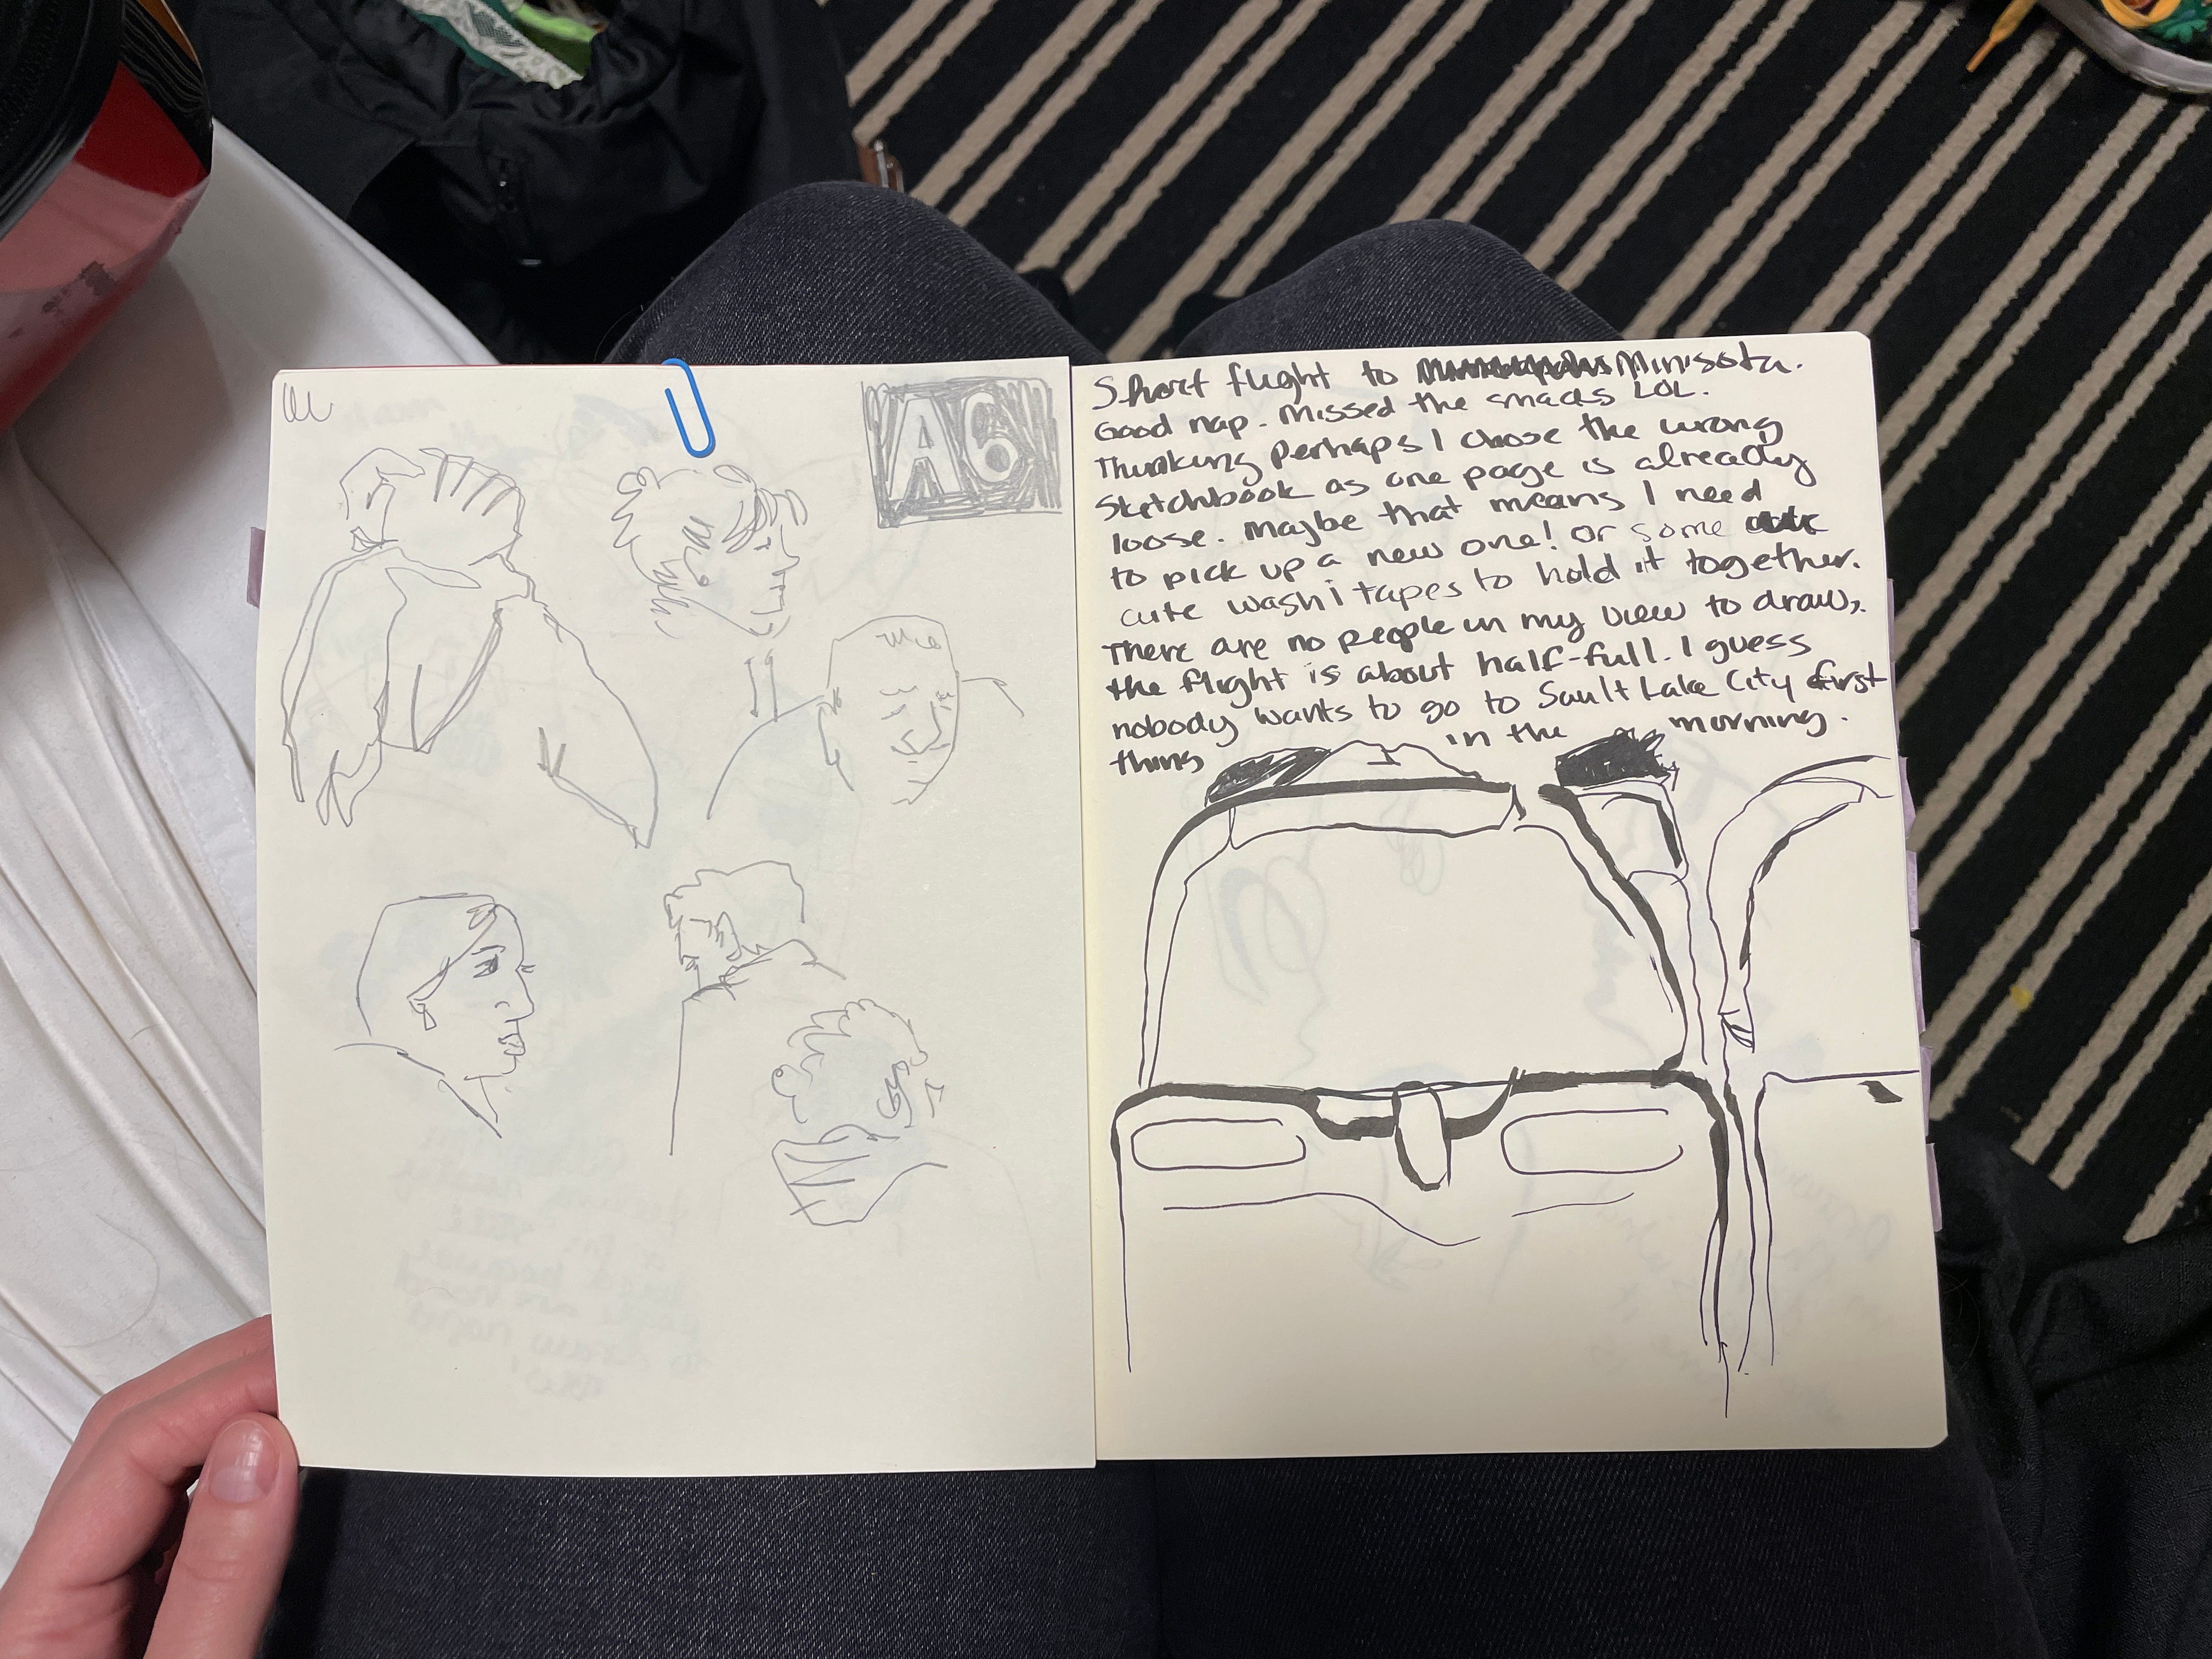 A6
Short flight to Minisota.
Good nap. Missed the smacks LOL.
Thinking perhaps I chose the wrong
sketchbook as one page is already
loose. Maybe that means I need
to pick up a new one! Or some
cute washi tapes to hold it together.
There are no people in my view to draw.
the flight is about half-full. I guess
nobody wants to go to Sault Lake City first
thing in the morning.